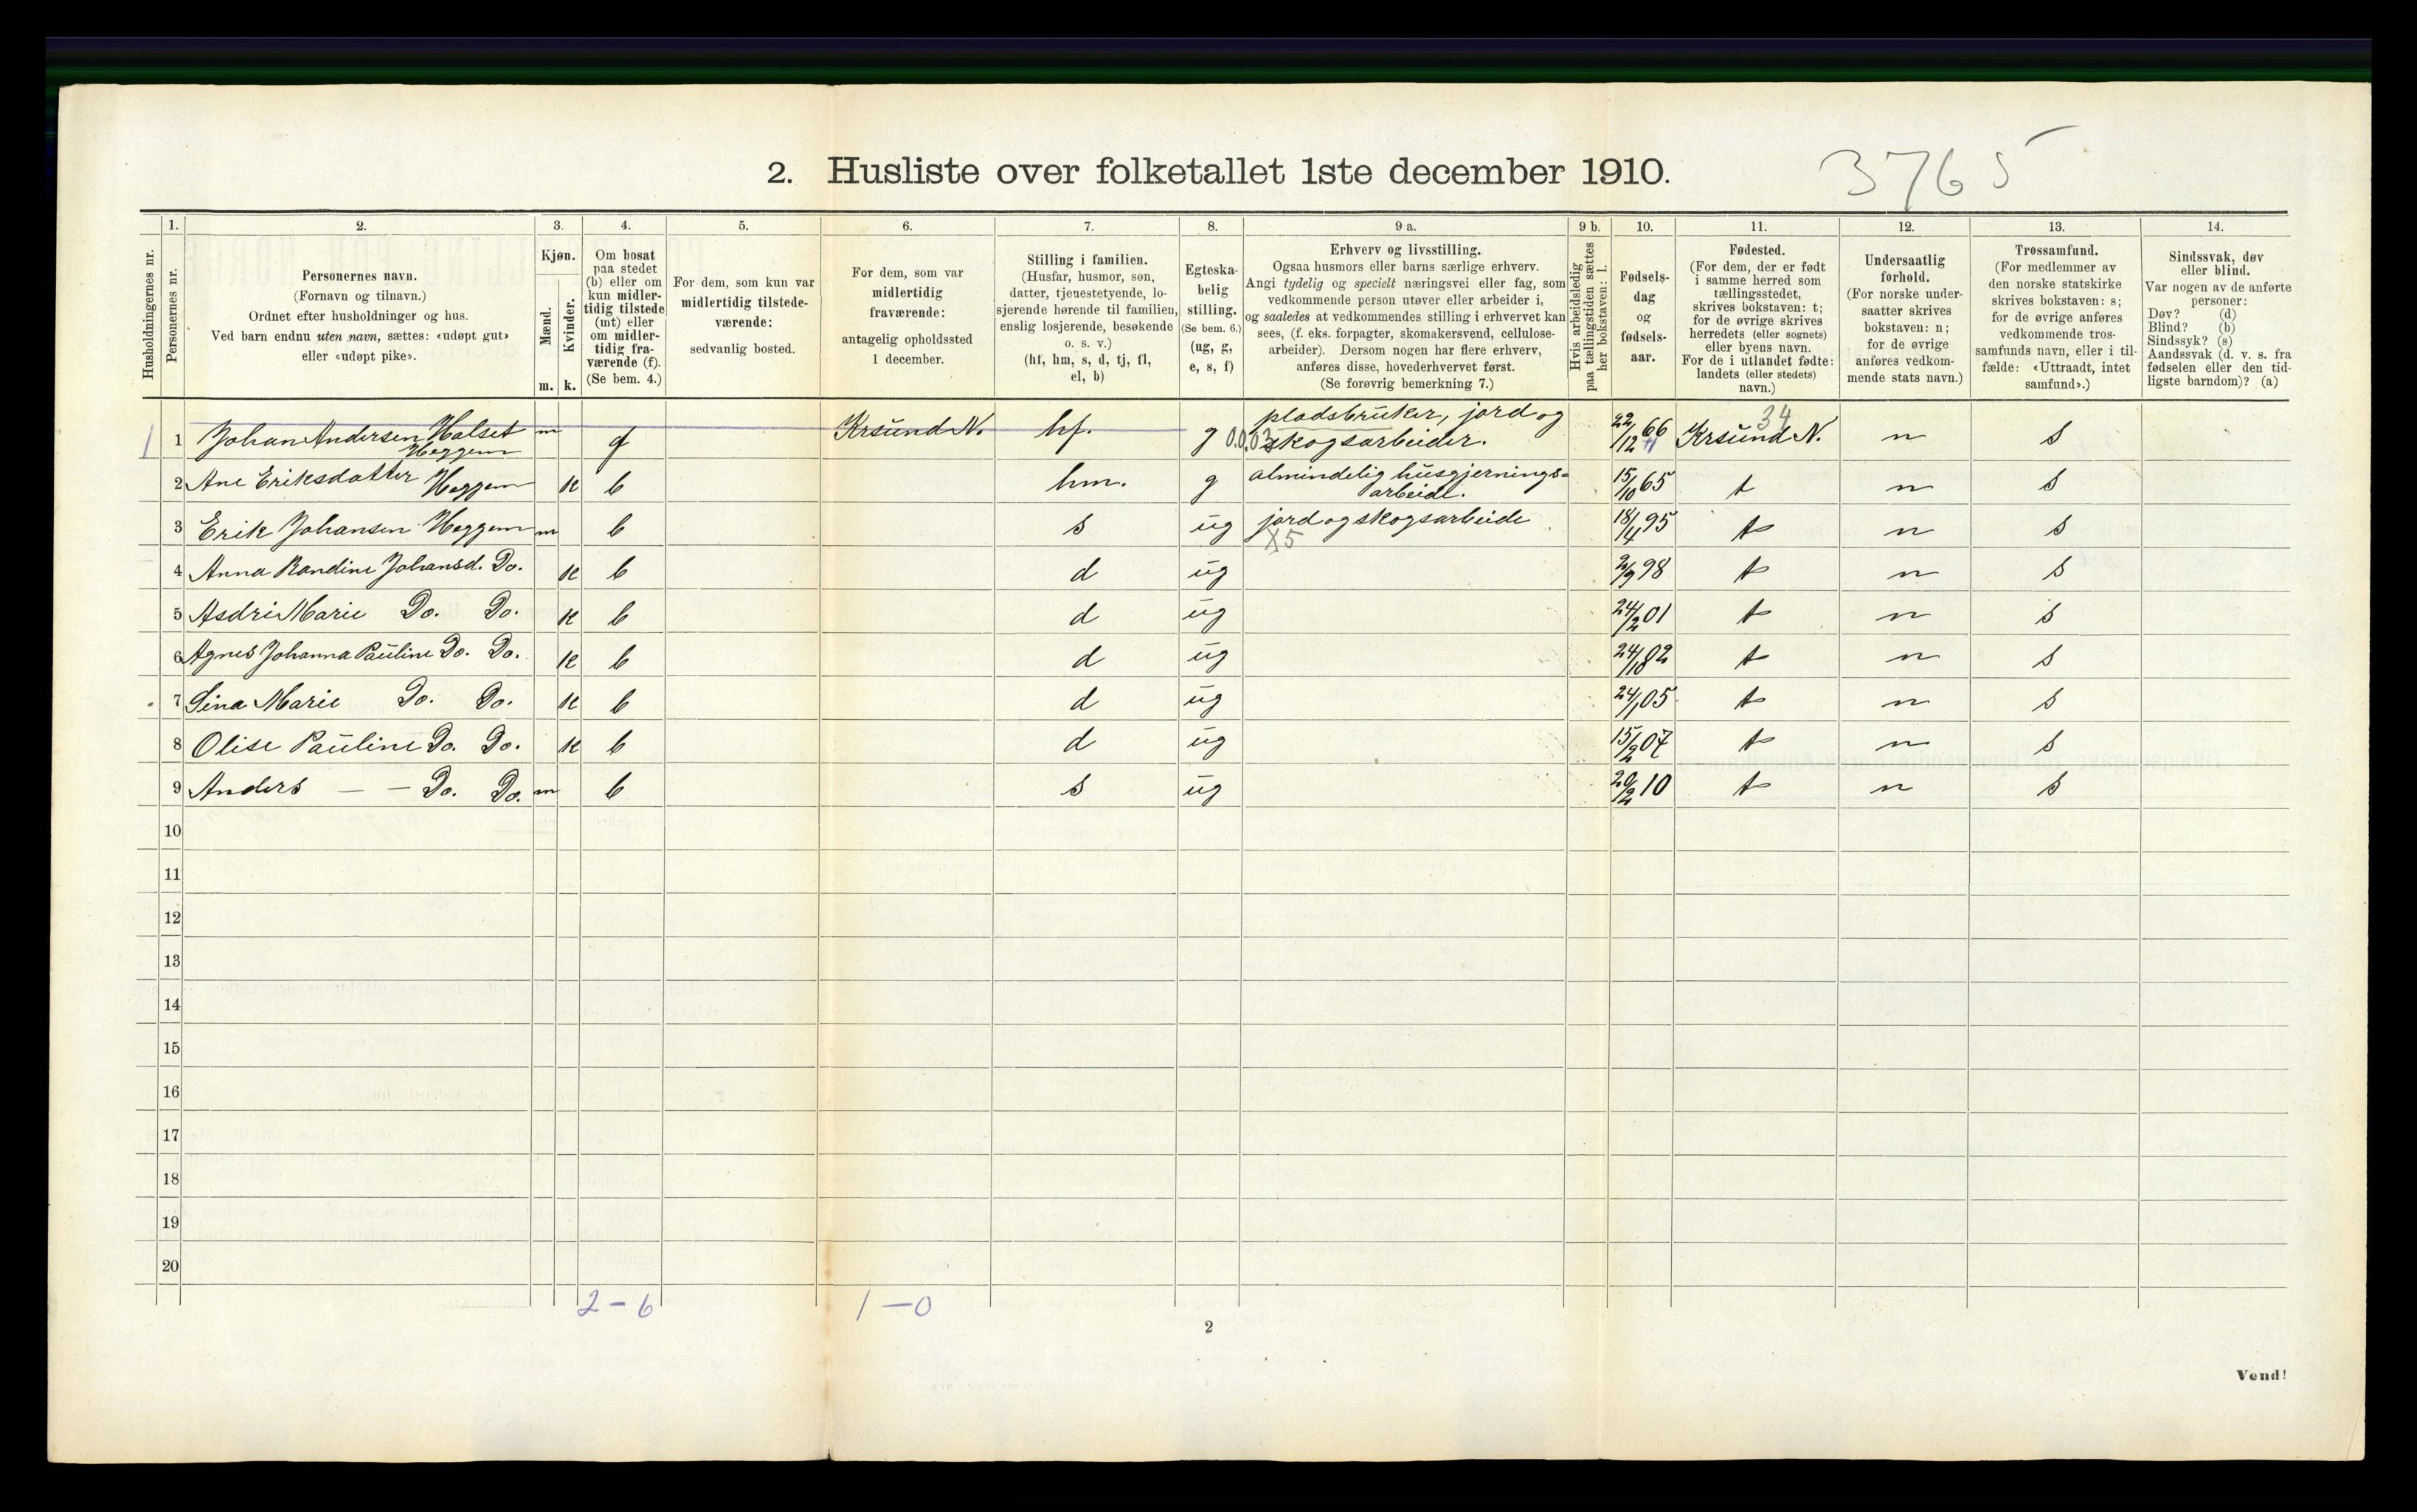 3765
2. Husliste over folketallet 1ste december 1910.
1. 2. 3. 4. 5. 6. 7. 8. 9 a. 9 b. 10. 11. 12. 13. 14.
Husholdningernes nr.
Personernes nr.
Personernes navn.
(Fornavn og tilnavn.)
Ordnet efter husholdninger og hus.
Ved barn endnu uten navn, sættes: «udøpt gut»
eller «udøpt pike».
Kjøn.
Mænd.
Kvinder.
m. k.
Om bosat
paa stedet
(b) eller om
kun midler-
tidig tilstede
(mt) eller
om midler-
tidig fra-
værende (f).
(Se bem. 4.)
For dem, som kun var
midlertidig tilstede-
værende:
sedvanlig bosted.
For dem, som var
midlertidig
fraværende:
antagelig opholdssted
1 december.
Stilling i familien.
(Husfar, husmor, søn,
datter, tjenestetyende, lo-
sjerende hørende til familien,
enslig losjerende, besøkende
o. s. v.)
(hf, hm, s, d, tj, fl,
el, b)
Egteska-
belig
stilling.
(Se bem. 6.)
(ug, g,
e, s, f)
Erhverv og livsstilling.
Ogsaa husmors eller barns særlige erhverv.
Angi tydelig og specielt næringsvei eller fag, som
vedkommende person utøver eller arbeider i,
og saaledes at vedkommendes stilling i erhvervet kan
sees, (f. eks. forpagter, skomakersvend, cellulose-
arbeider). Dersom nogen har flere erhverv,
anføres disse, hovederhvervet først.
(Se forøvrig bemerkning 7.)
Hvis arbeidsledig
paa tællingstiden sættes
her bokstaven: l.
Fødsels-
dag
og
fødsels-
aar.
Fødested.
(For dem, der er født
i samme herred som
tællingsstedet,
skrives bokstaven: t;
for de øvrige skrives
herredets (eller sognets)
eller byens navn.
For de i utlandet fødte:
landets (eller stedets)
navn.)
Undersaatlig
forhold.
(For norske under-
saatter skrives
bokstaven: n;
for de øvrige
anføres vedkom-
mende stats navn.)
Trossamfund.
(For medlemmer av
den norske statskirke
skrives bokstaven: s;
for de øvrige anføres
vedkommende tros-
samfunds navn, eller i til-
fælde: «Uttraadt, intet
samfund».)
Sindssvak, døv
eller blind.
Var nogen av de anførte
personer:
Døv? (d)
Blind? (b)
Sindssyk? (s)
Aandssvak (d. v. s. fra
fødselen eller den tid-
ligste barndom)? (a)
pladsbruker, jord og 34
1 1 Johan Andersen Halset m f Krsund N. hf. g 0.0.03 skogsarbeider. 22/12 66 Krsund N. n s
Heggem
2 Ane Eriksdatter Heggem k b hm. g almindelig husgjernings- 15/10 65 t n s
arbeide.
3 Erik Johansen Heggem m b s ug jord og skogsarbeide 18/4 95 t n s
X5
4 Anna Randine Johansd. Do. k b d ug 2/9 98 t n s
5 Asdri Marie Do. Do. k b d ug 24/2 01 t n s
6 Agnes Johanna Pauline Do. Do. k b d ug 24/10 02 t n s
7 Sina Marie Do. Do. k b d ug 24/1 05 t n s
8 Olise Pauline Do. Do. k b d ug 15/2 07 t n s
9 Anders — — Do. Do. m b s ug 20/2 10 t n s
10
11
12
13
14
15
16
17
18
19
20
2 – 6 1 – 0
2
Vend!